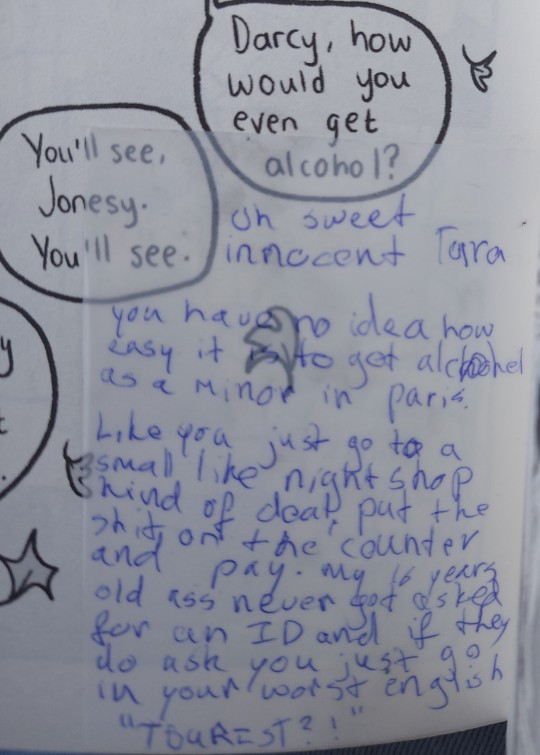 Darcy, how
would you
even get
alcohol?
You'll see,
Jonesy.
You'll see.
Oh sweet
innocent Tara
you have no idea how
easy it is to get alcohol
as a minor in paris.
Like you just go to a
small like night shop
kind of deal, put the
shit on the counter
and pay. My 16 years
old ass never got asked
for an ID and if they
do ask you just go
in your worst english
"TOURIST?!"